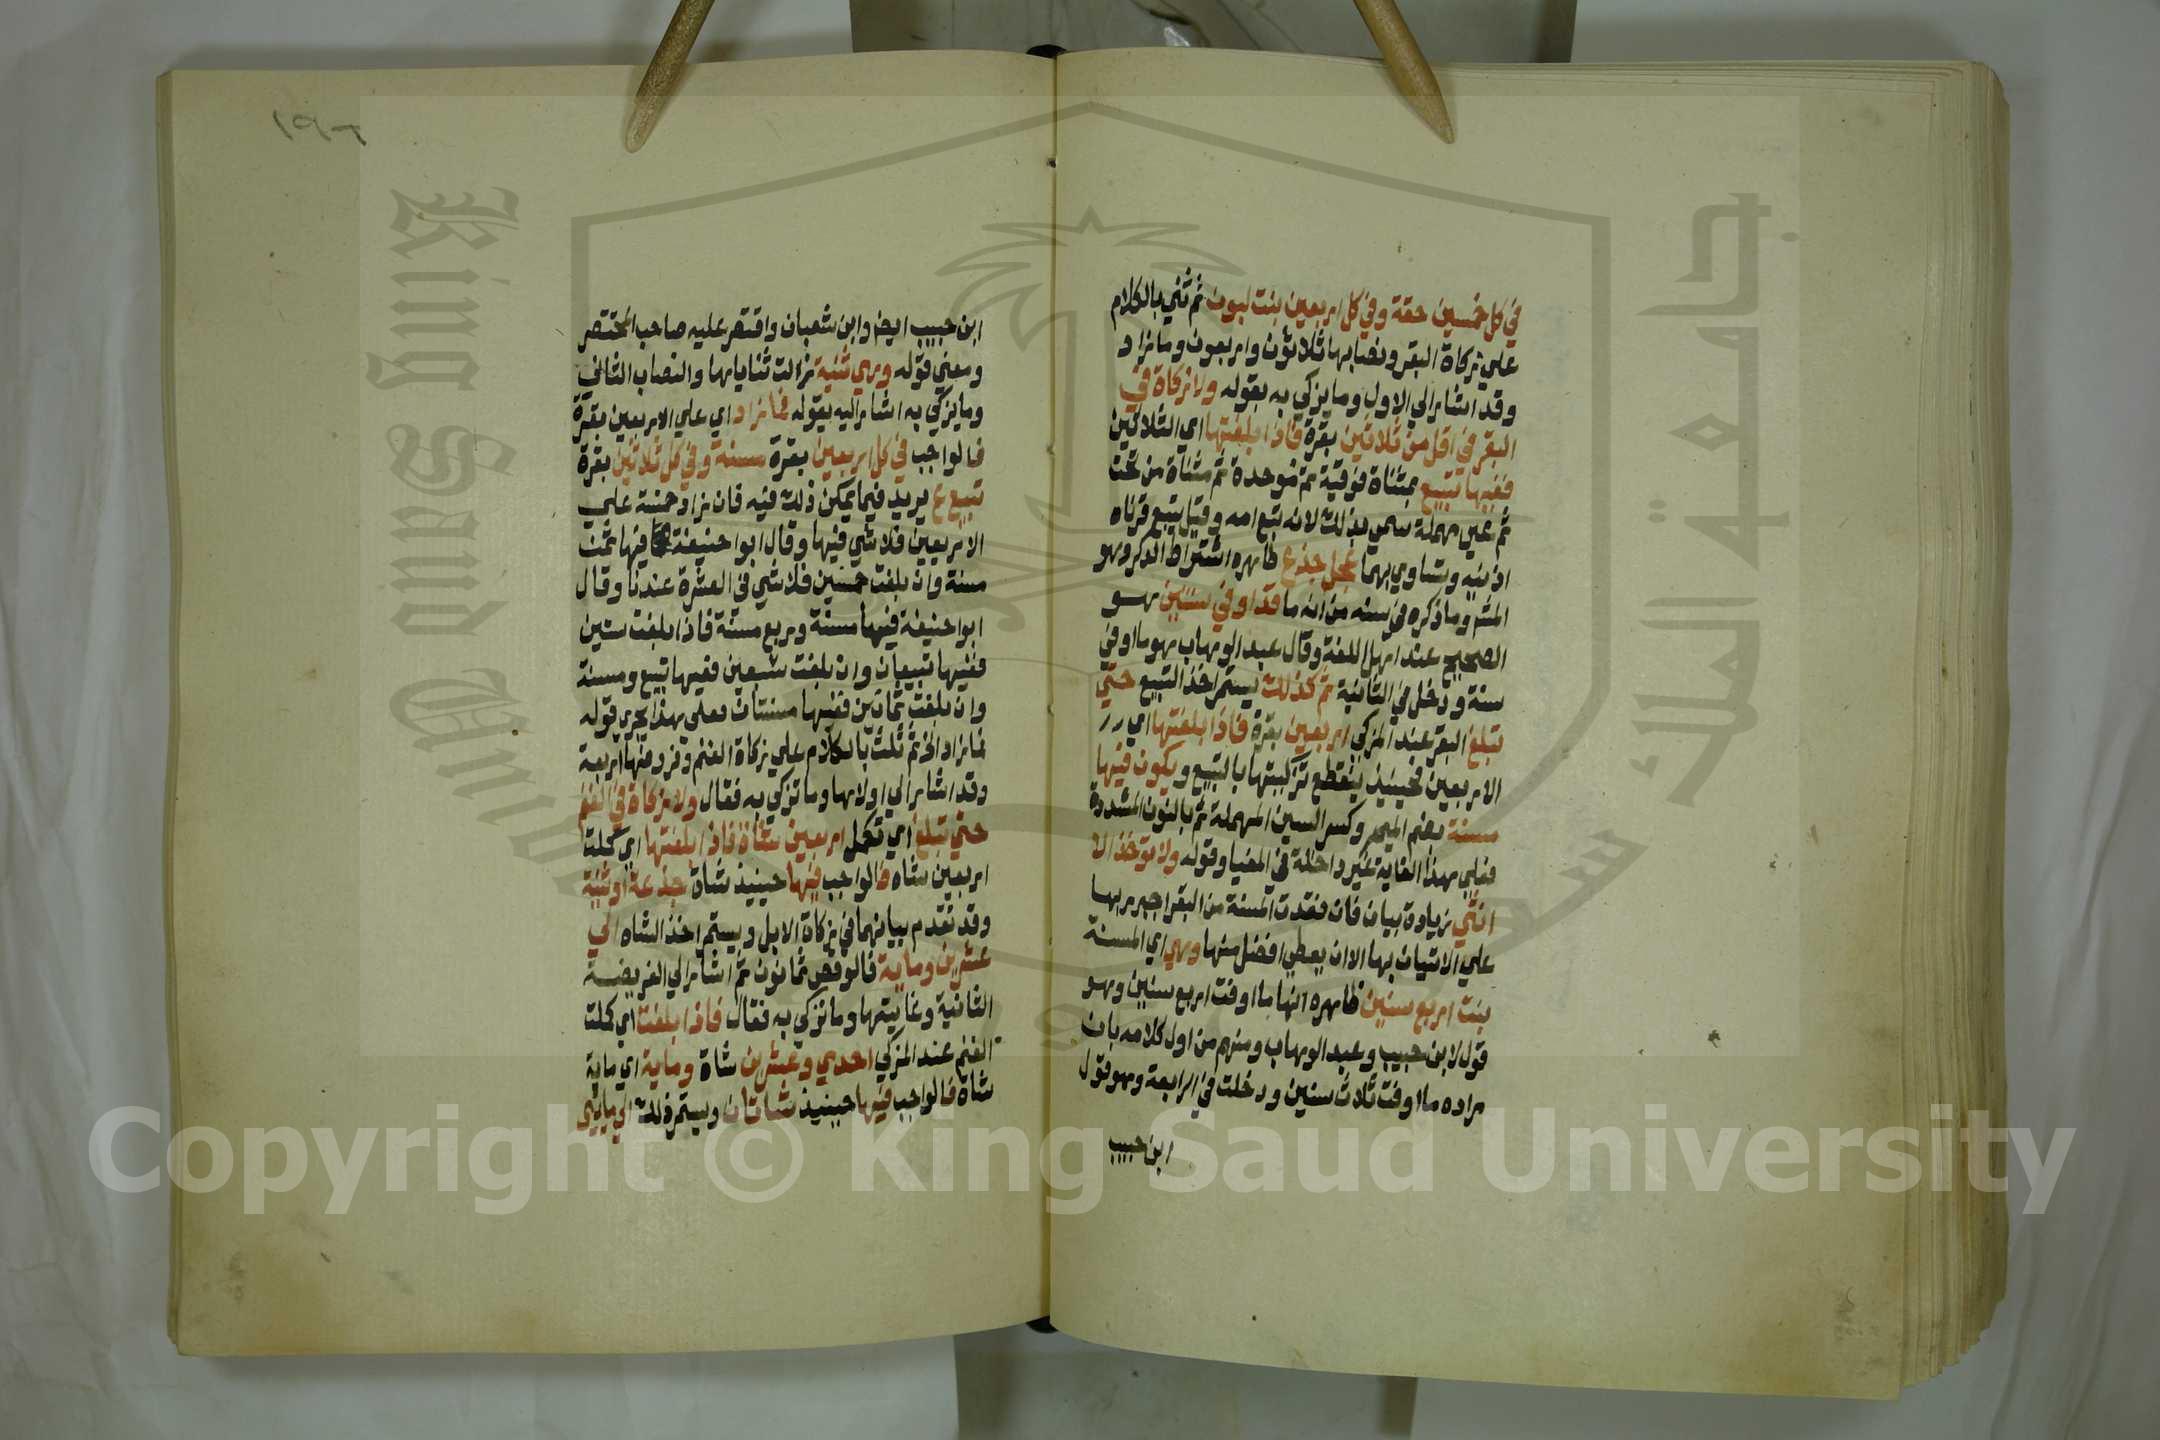 في كل خمسين حقة وفي كل اربعين بنت لبون ثم ثني بالكلام
علي زكاة البقر ونصابها ثلاثون واربعون وما زاد
وقد اشار الي الاول وما يزكي به بقوله ولا زكاة في
البقر في اقل من ثلاثين بقرة فاذا بلغتها اي الثلاثين
ففيها تبيع بمثناة فوقية ثم موحدة ثم مثناة من تحت
ثم عين مهملة سمي بذلك لانه يتبع امه وقيل يتبع قرناه
اذنيه ويساوي بهما عجل جذع ظاهره اشتراط الذكر وهو
المش وما ذكره في سنه من انه ما قد اوفي سنتين هو
الصحيح عند اهل اللغة وقال عبد الوهاب هو ما اوفي
سنة ودخل في الثانية ثم كذلك يستمر اخذ التبيع حتي
تبلغ البقر عند المزكي اربعين بقرة فاذا بلغتها اي
الاربعين فحينيذ ينقطع تزكيتها بالتبيع ويكون فيها
مسنة بضم الميم وكسر السين المهملة ثم بالنون المشددة
فعلي هذا الغاية غير داخلة في المغيا وقوله ولا توخذ الا
انثي زيادة بيان فان فقدت المسنة من البقر اجبر ربها
علي الاتيان بها الا ان يعطي افضل منها وهي اي المسنة
بنت اربع سنين ظاهره انها ما اوفت اربع سنين وهو
قول لابن حبيب وعبد الوهاب ومنهم من اول كلامه بان
مراده ما اوفت ثلاث سنين ودخلت في الرابعة وهو قول
ابن حبيب
١٩٦
ابن حبيب ايضا وابن شعبان واقتصر عليه صاحب المختصر
ومعني قوله وهي ثنية زالت ثناياها والنصاب الثاني
وما يزكي به اشار اليه بقوله فما زاد اي علي الاربعين بقرة
فالواجب في كل اربعين بقرة مسنة وفي كل ثلاثين بقرة
تبيع ع يريد فيما يمكن ذلك فيه فان زاد خمسة علي
الاربعين فلا شي فيها وقال ابو حنيفة فيها ثمن
مسنة وان بلغت خمسين فلا شي في العشرة عندنا وقال
ابو حنيفة فيها مسنة وربع مسنة فاذا بلغت ستين
ففيها تبيعان وان بلغت سبعين ففيها تبيع ومسنة
وان بلغت ثمانين ففيها مسنتان فعلي هذا يجري قوله
فما زاد الخ ثم ثلث بالكلام علي زكاة الغنم وفروضها اربعة
وقد اشار الي اولاها وما تزكي به فقال ولا زكاة في الغنم
حتي تبلغ اي تكمل اربعين شاة فاذا بلغتها اي كملت
اربعين شاه فالواجب فيها حينيذ شاة جذعة او ثنية
وقد تقدم بيانهما في زكاة الابل ويستمر اخذ الشاه الي
عشرين وماية فالوقص ثمانون ثم اشار الي الفريضة
الثانية وغايتها وما تزكي به فقال فاذا بلغت اي كملت
الغنم عند المزكي احدي وعشرين شاة وماية اي ماية
شاة فالواجب فيها حينيذ شاتان ويستمر ذلك الي مايتي